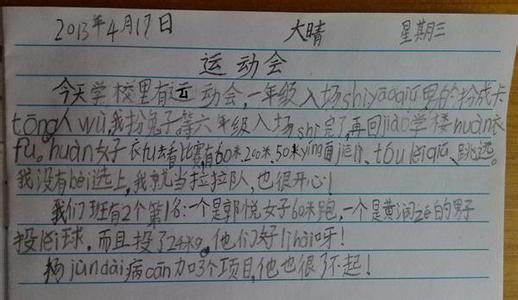 2013年4月17日 大晴 星期三
运动会
今天学校里有运动会,一年级入场shíyāoqiú男的扮成卡
tōng人wù,我扮兔子等六年级入场shì完了,再回jiào学楼huàn衣
fu。huàn好子衣fu去看比赛,有60米,200米,50米yíng面jiē力、tóu léi qiú、跳远。
我没有bèi选上,我就当拉拉队,也很开心!
我们班有2个第1名:一个是郭悦女子60米跑,一个是黄润zé的男子
投léi球,而且投了24米。他们好lì hài呀!
杨jùn dài病cān加3个项目,他也很了不起!